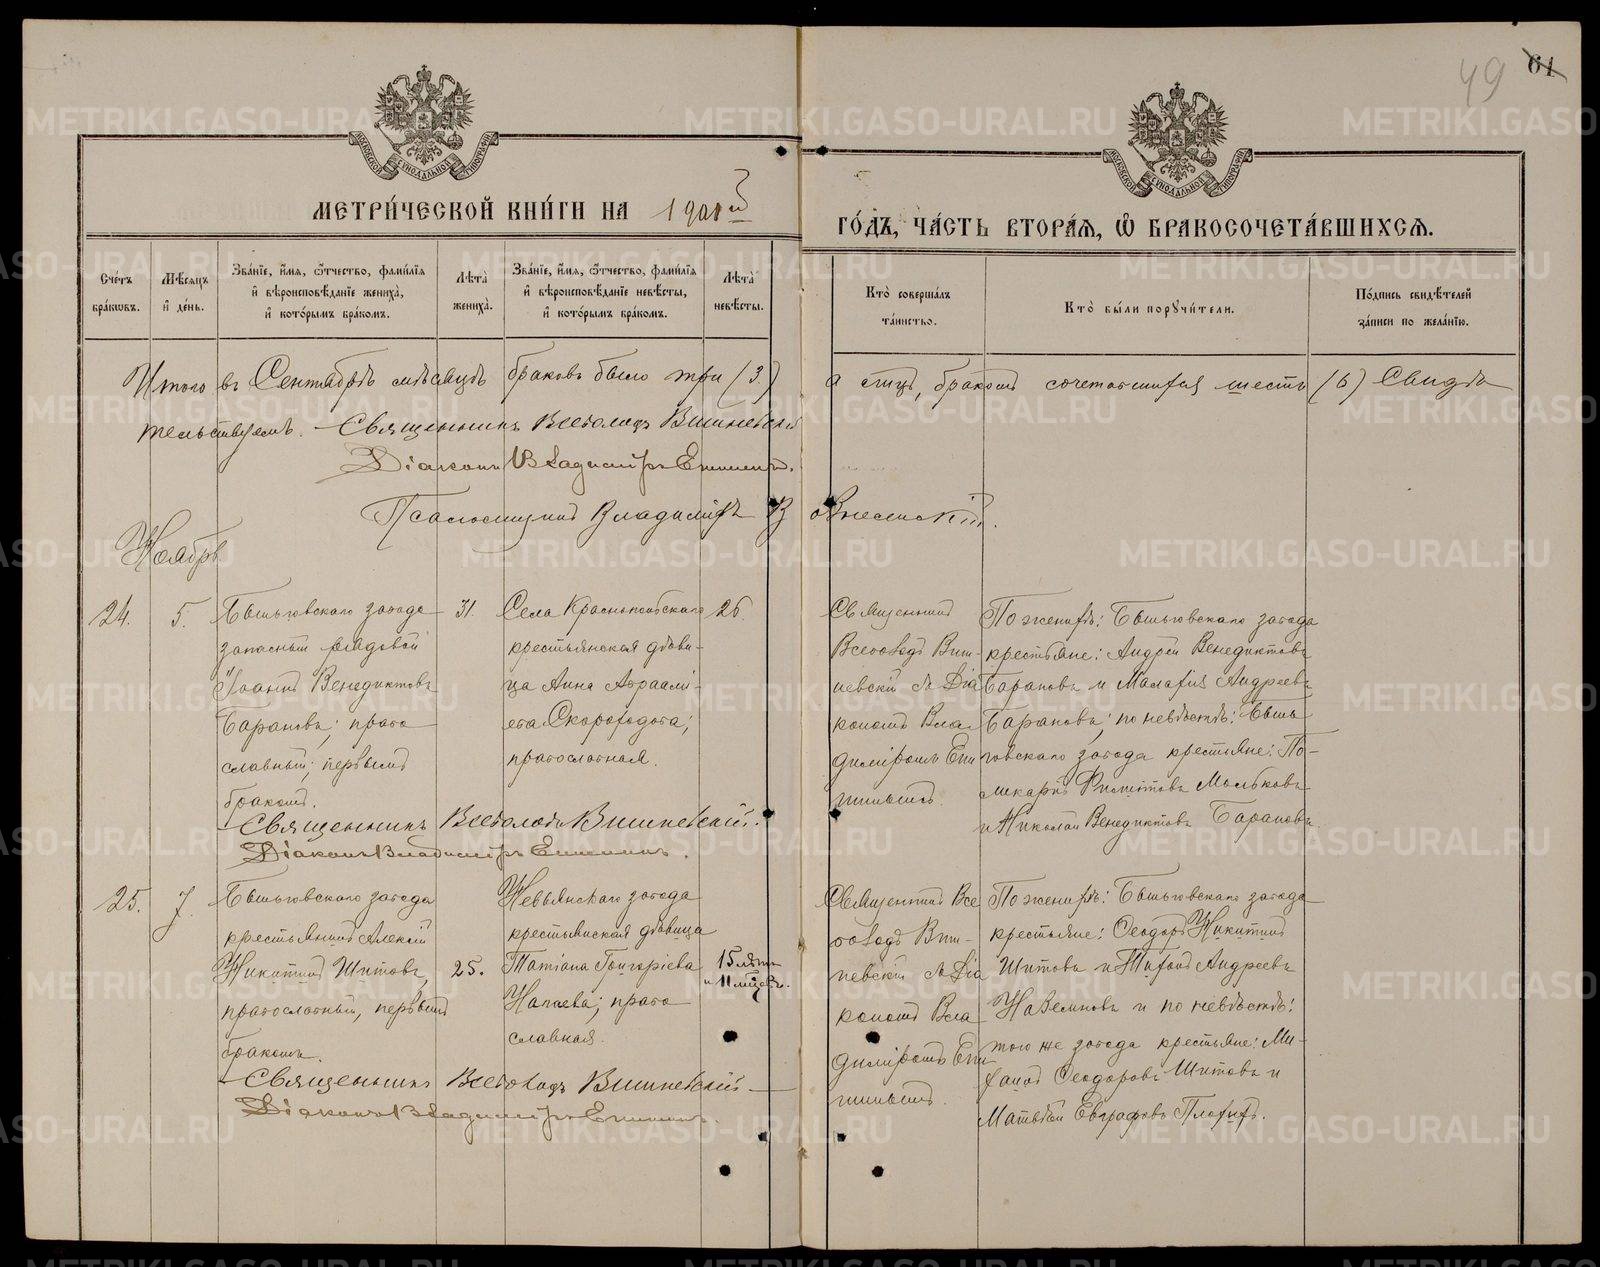 49 61
МЕТРИ́ЧЕСКОЙ КНИ́ГИ НА 1901й
ГО́ДЪ, ЧА́СТЬ ВТОРА́Я, Ѽ БРАКОСОЧЕТА́ВШИХСЯ.
МОСКОВСКОЙ СУНОДАЛЬНОЙ ТИПОГРАФІИ
МОСКОВСКОЙ СУНОДАЛЬНОЙ ТИПОГРАФІИ
Сче́тъ бра́кѡвъ.
Мѣ́сяцъ и́ де́нь.
Зва́нїе, и́мя, ѻ́тчество, фами́лїя и́ вѣроисповѣ́данїе жениха̀, и́ кото́рымъ бра́комъ.
Лѣ́та̀ жениха̀.
Зва́нїе, и́мя, ѻ́тчество, фами́лїя и́ вѣроисповѣ́данїе невѣ́сты, и́ кото́рымъ бра́комъ.
Лѣ́та̀ невѣ́сты.
Кто̀ соверша́лъ та́инство.
Кто̀ бы́ли порꙋчи́тели.
По́дпись свидѣ́телей за́писи по жела́нїю.
Итого въ Сентябрѣ мѣсяцѣ браковъ было три (3) а лицъ, бракомъ сочетавшихся шесть (6) Свидѣ
тельствуемъ. Священникъ Всеволодъ Вишневскій
Діаконъ Владиміръ
Псаломщикъ Владиміръ Вознесенскій.
Ноябрь
24. 5.
Быньговскаго завода
запасный рядовой
Іоаннъ Венедиктовъ
Барановъ; право
славный; первымъ
бракомъ.
31.
Села Краснопольскаго
крестьянская дѣви-
ца Анна Авраамі-
ева Скороходова;
православная.
26.
Священникъ
Всеволодъ Виш-
невскій съ Діа
кономъ Вла
диміромъ

По женихѣ: Быньговскаго завода
крестьяне: Андрей Венедиктовъ
Барановъ и Малахія Андреевъ
Барановъ; по невѣстѣ: Бынь
говскаго завода крестьяне: По-
ликарпъ Филиповъ Мальковъ
и Николай Венедиктовъ Барановъ.
Священникъ Всеволодъ Вишневскій.
Діаконъ Владиміръ
25. 7.
Быньговскаго завода
крестьянинъ Алексій
Никитинъ Шитовъ,
православный, первымъ
бракомъ.
25.
Невьянскаго завода
крестьянская дѣвица
Татіана Григоріева
Напаева; право
славная.
15 лѣтъ
и 11 мѣсяцевъ.
Священникъ Все
володъ Виш-
невскій съ Діа
кономъ Вла
диміромъ
По женихѣ: Быньговскаго завода
крестьяне: Ѳеодоръ Никитинъ
Шитовъ и Тихонъ Андреевъ
и по невѣстѣ:
того же завода крестьяне: Ми-
хаилъ Ѳеодоровъ Шитовъ и
Матвѣй Евграфовъ Плохихъ.
Священникъ Всеволодъ Вишневскій
Діаконъ Владиміръ
METRIKI.GASO-URAL.RU